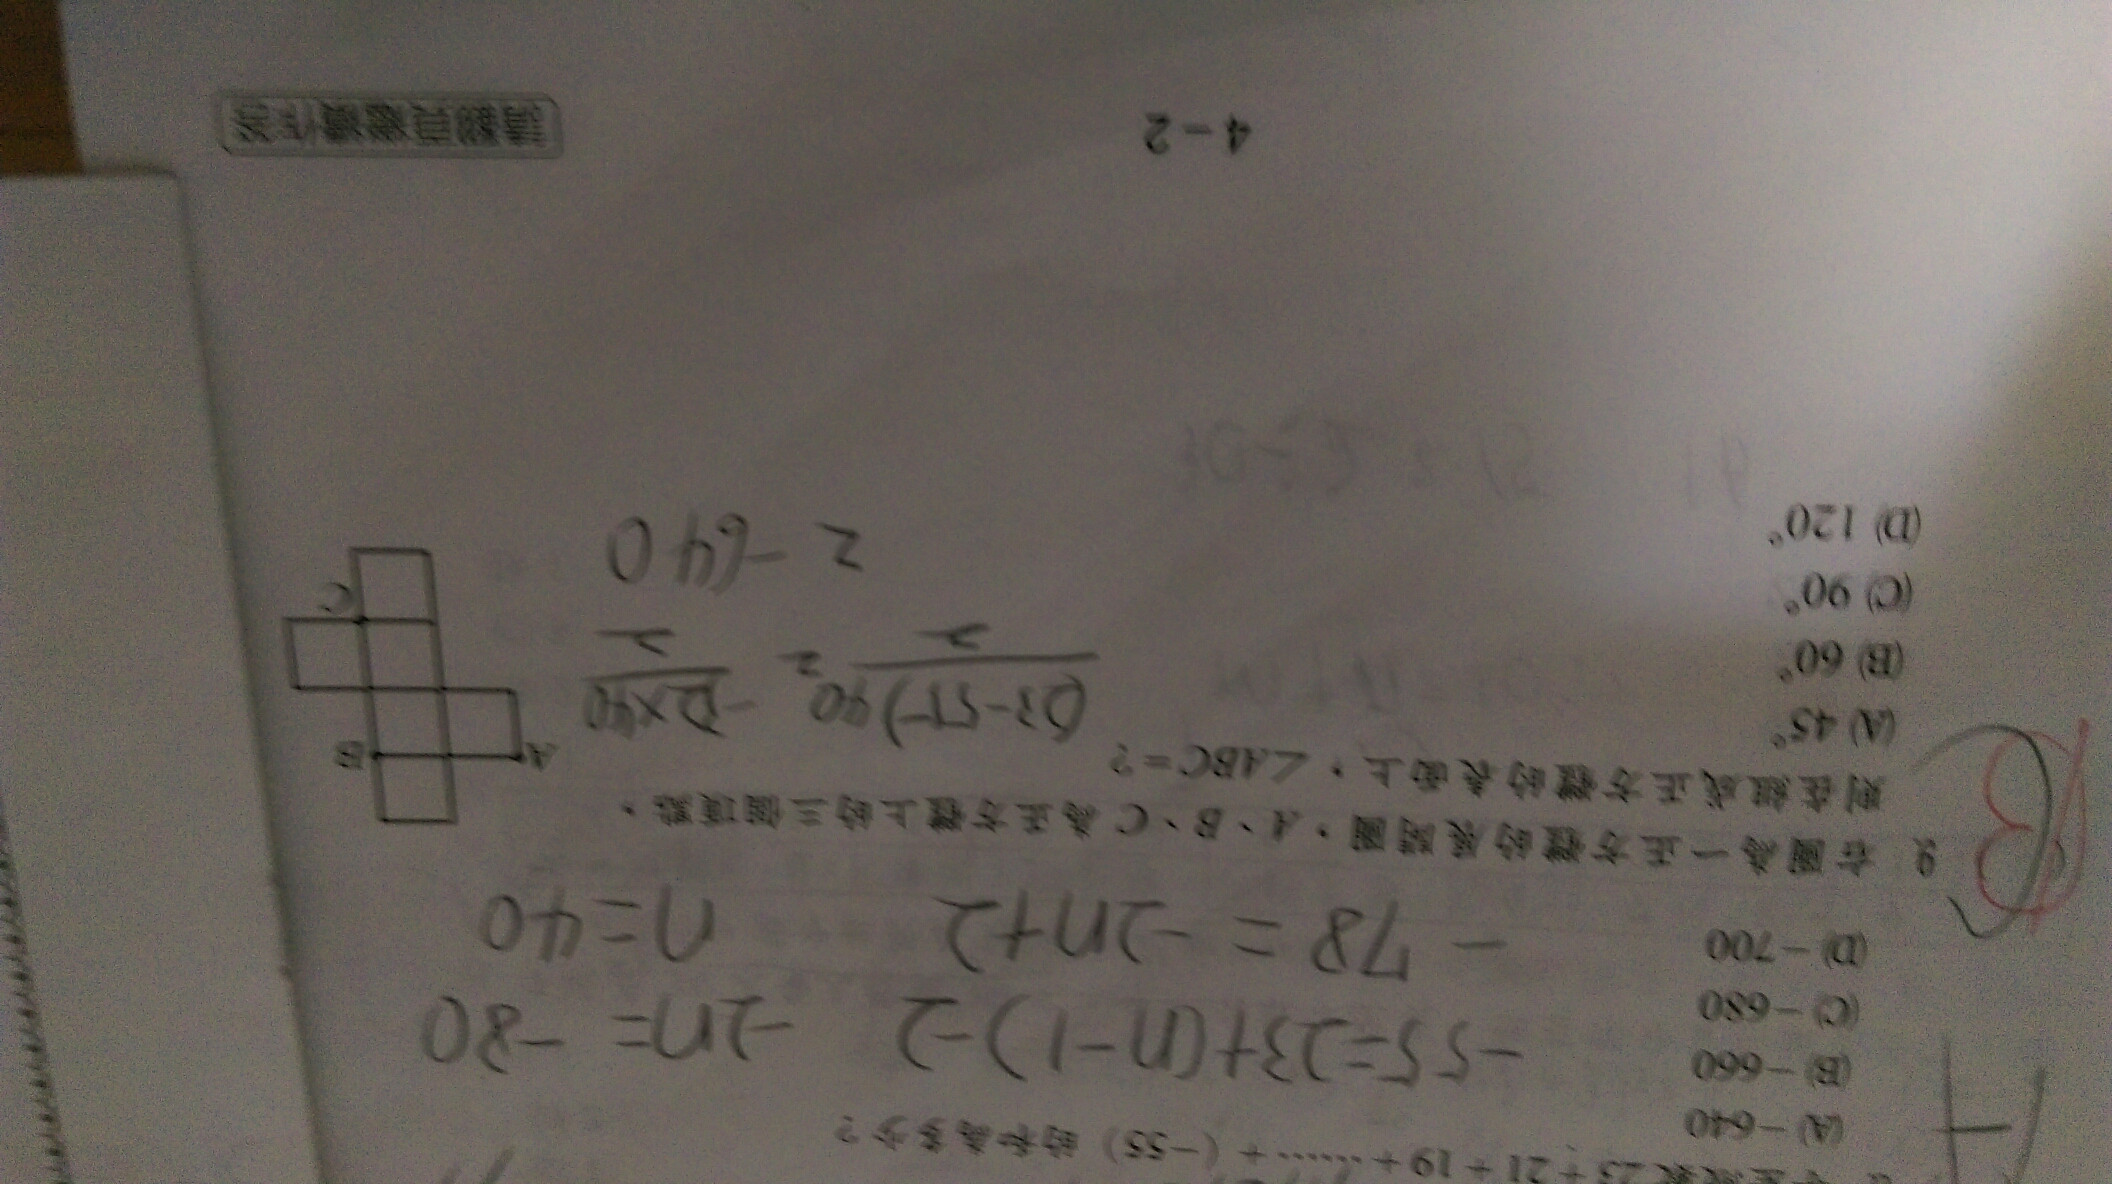 23 + 21 + 19 + …… + (−55) 的和為多少？
(A) −640
(B) −660
(C) −680
(D) −700
−55=23+(n−1)−2
−2n= −80
−78 = −2n+2
n=40
9. 右圖為一正方體的展開圖，A、B、C為正方體上的三個頂點，
則在組成正方體的表面上，∠ABC=？
(A) 45°
(B) 60°
(C) 90°
(D) 120°
A
B
C
B
(23−55)40
2
−32×40
2
= −640
4－2
請翻頁繼續作答